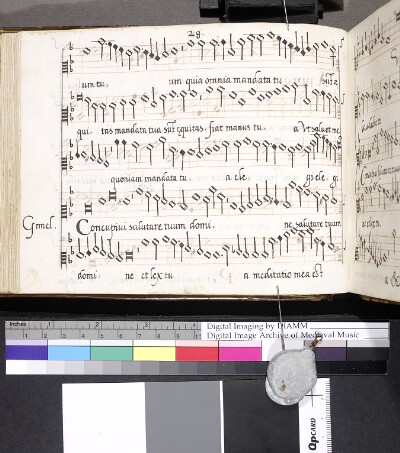 28
um tu. um quia omnia mandata tu
qui- tas mandata tua sunt equitas. fiat manus tu. a Ut saluet me
quoniam mandata tu. a ele. gi ele. gi
Gymel. Concupiui salutare tuum domi. ne salutare tuum
domi. ne et lex tu a meditatio mea est
inches 1 2 3 4
Digital Imaging by DIAMM
Digital Image Archive of Medieval Music
QPCARD